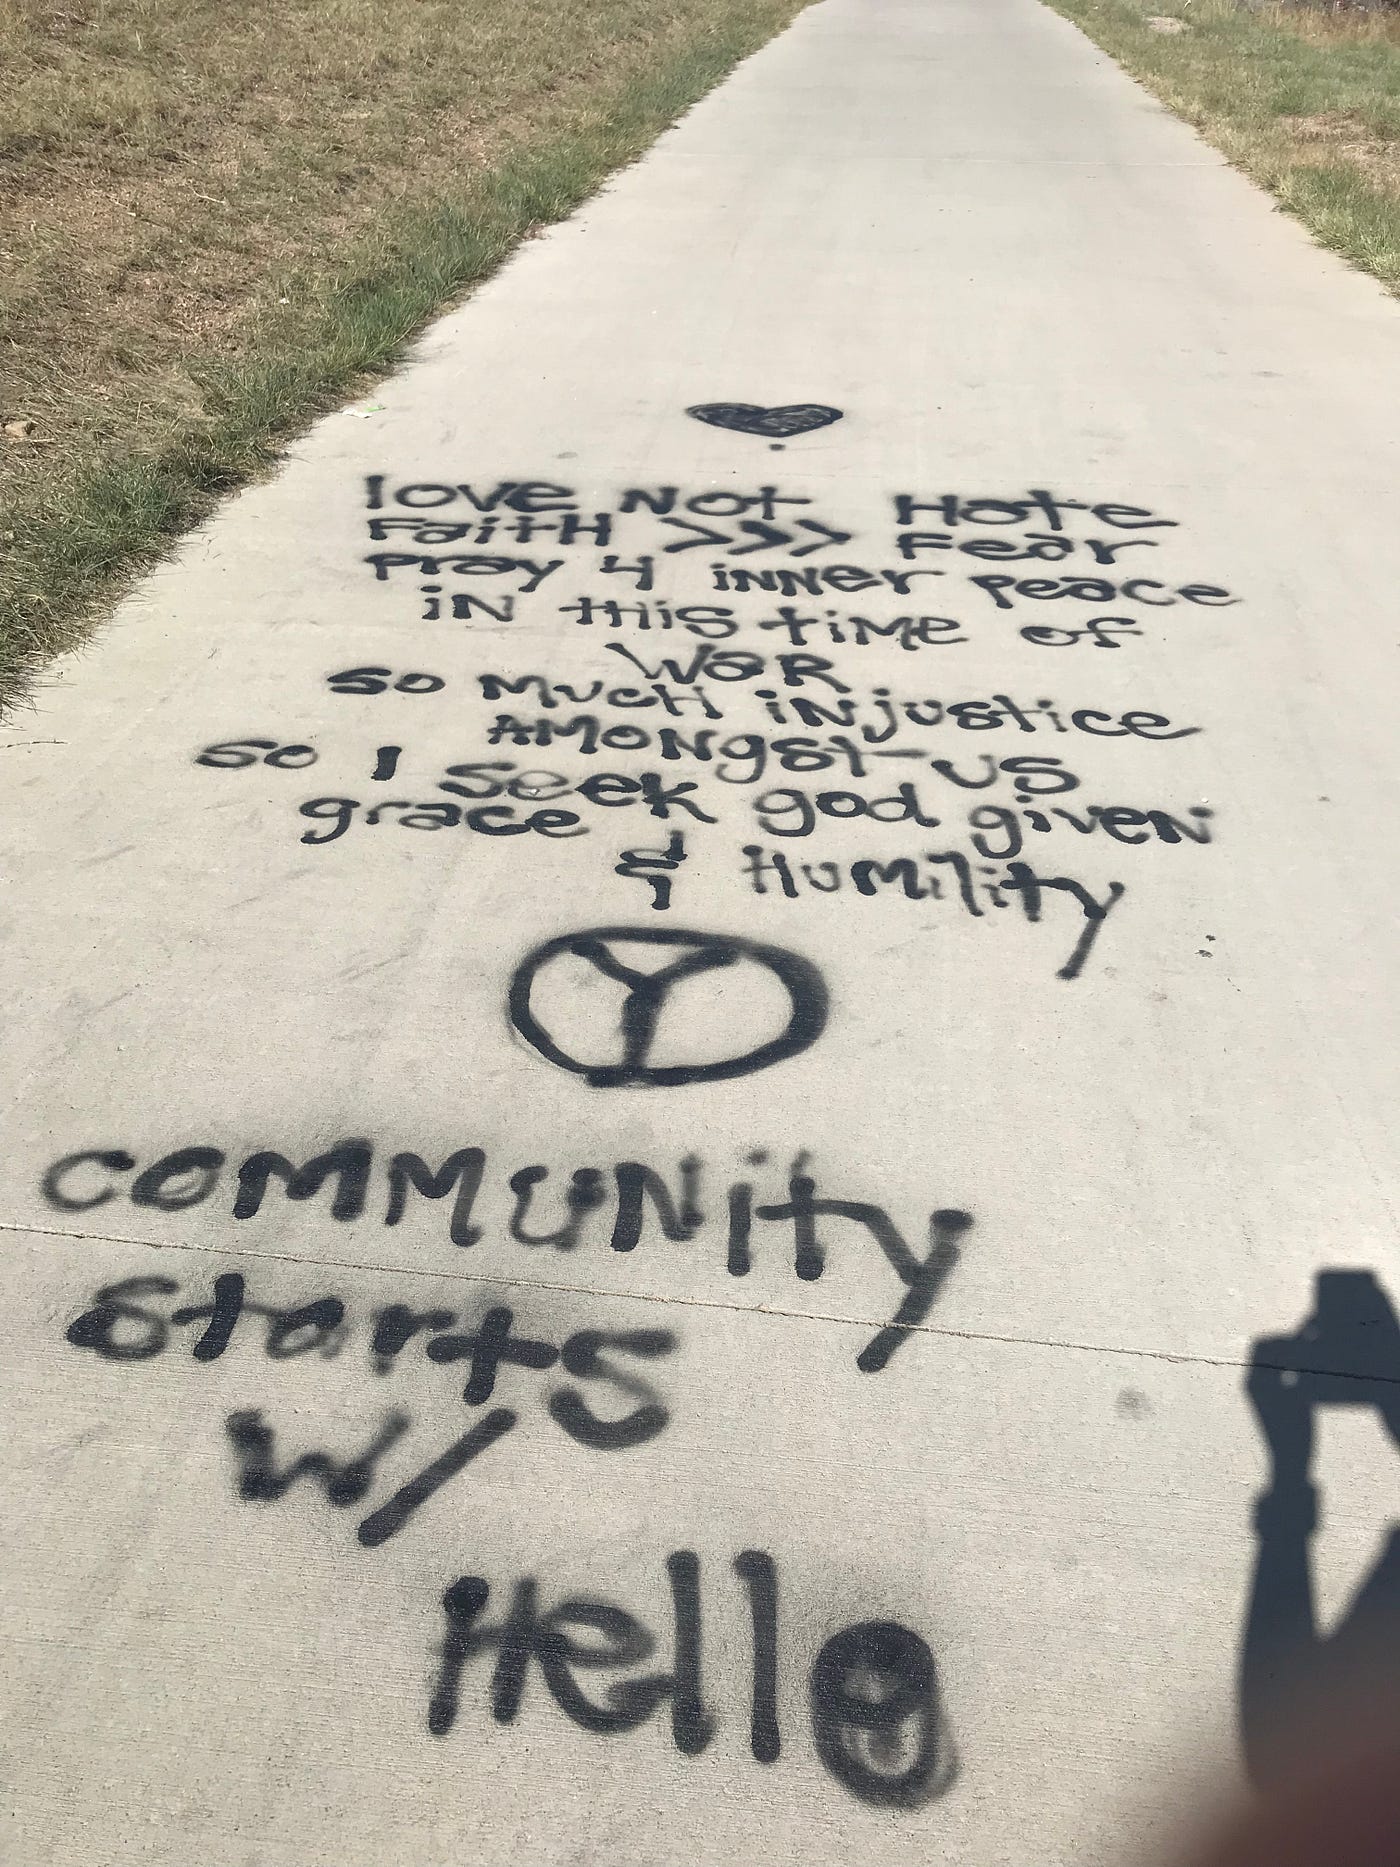 love Not Hate
Faith >>>> Fear
Pray 4 inner peace
in this time of
War
so Much injustice
Amongst us
so I seek god given
grace & Humility
community
starts
w/
Hello